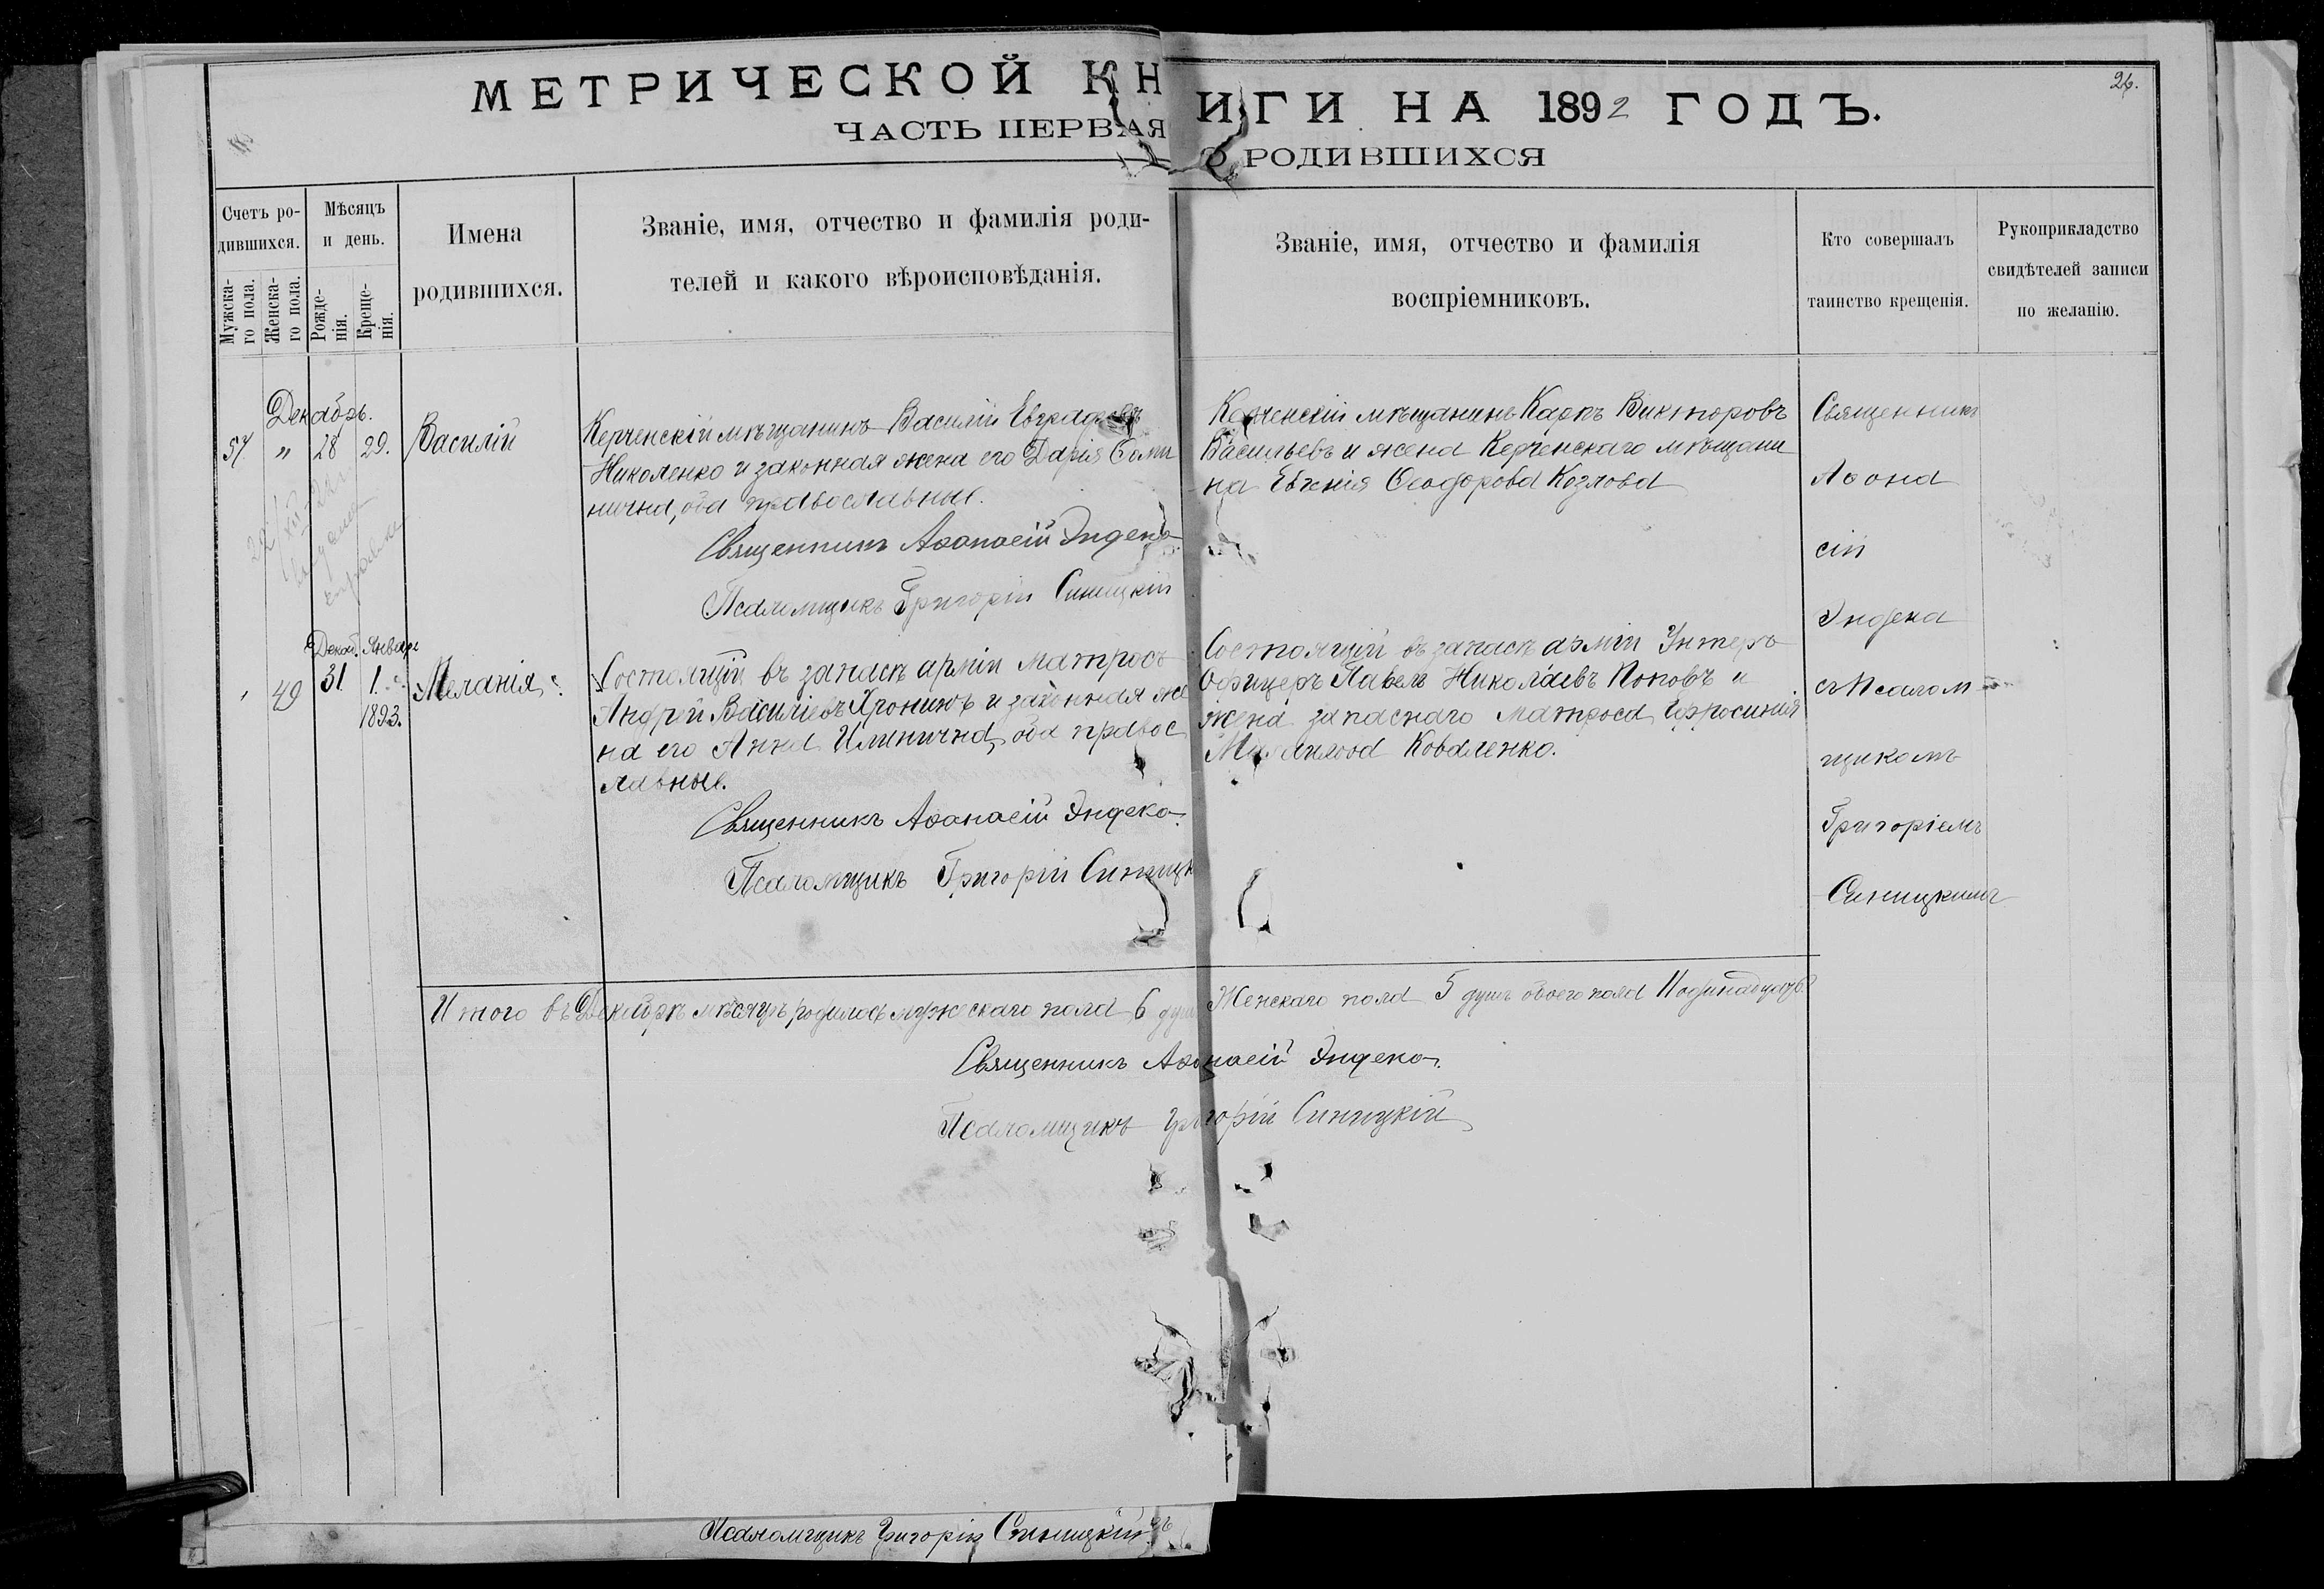 МЕТРИЧЕСКОЙ КНИГИ НА 1892 ГОДЪ.
26.
ЧАСТЬ ПЕРВАЯ О РОДИВШИХСЯ
Счетъ ро-
дившихся.
Мужска-
го пола.
Женска-
го пола.
Мѣсяцъ
и день.
Рожде-
нія.
Креще-
нія.
Имена
родившихся.
Званіе, имя, отчество и фамилія роди-
телей и какого вѣроисповѣданія.
Званіе, имя, отчество и фамилія
воспріемниковъ.
Кто совершалъ
таинство крещенія.
Рукоприкладство
свидѣтелей записи
по желанію.
Декабрь.
57 " 28 29. Василій
Керченскій мѣщанинъ Василій Евграфовъ
Николенко и законная жена его Дарія Ѳоми
нична, оба православные.
Священникъ Аѳанасій Эндека
Псаломщикъ Григорій Синицкій
Керченскій мѣщанинъ Карпъ Викторовъ
Васильевъ и жена Керченскаго мѣщани
на Евгенія Ѳеодорова Козлова
Священникъ
Аѳана
сій
Эндека
съ Псалом
щикомъ
Григоріемъ
Синицкимъ
выдана
справка
Декаб. Января
49 31 1. Меланія
1893.
Состоящій въ запасѣ арміи матросъ
Андрей Василіевъ Хронюкъ и законная же
на его Анна Илинична, оба правос
лавные.
Священникъ Аѳанасій Эндека
Псаломщикъ Григорій Синицк
Состоящій въ запасѣ арміи Унтеръ
Офицеръ Павелъ Николаевъ Поповъ и
жена запаснаго матроса Ефросинія
Коваленко.
Итого въ Декабрѣ мѣсяцѣ родилось мужескаго пола 6 душ Женскаго пола 5 душъ обоего пола 11 одинадцать.
Священникъ Аѳанасій Эндека
Псаломщикъ Григорій Синицкій
Псаломщикъ Григорій Синицкій